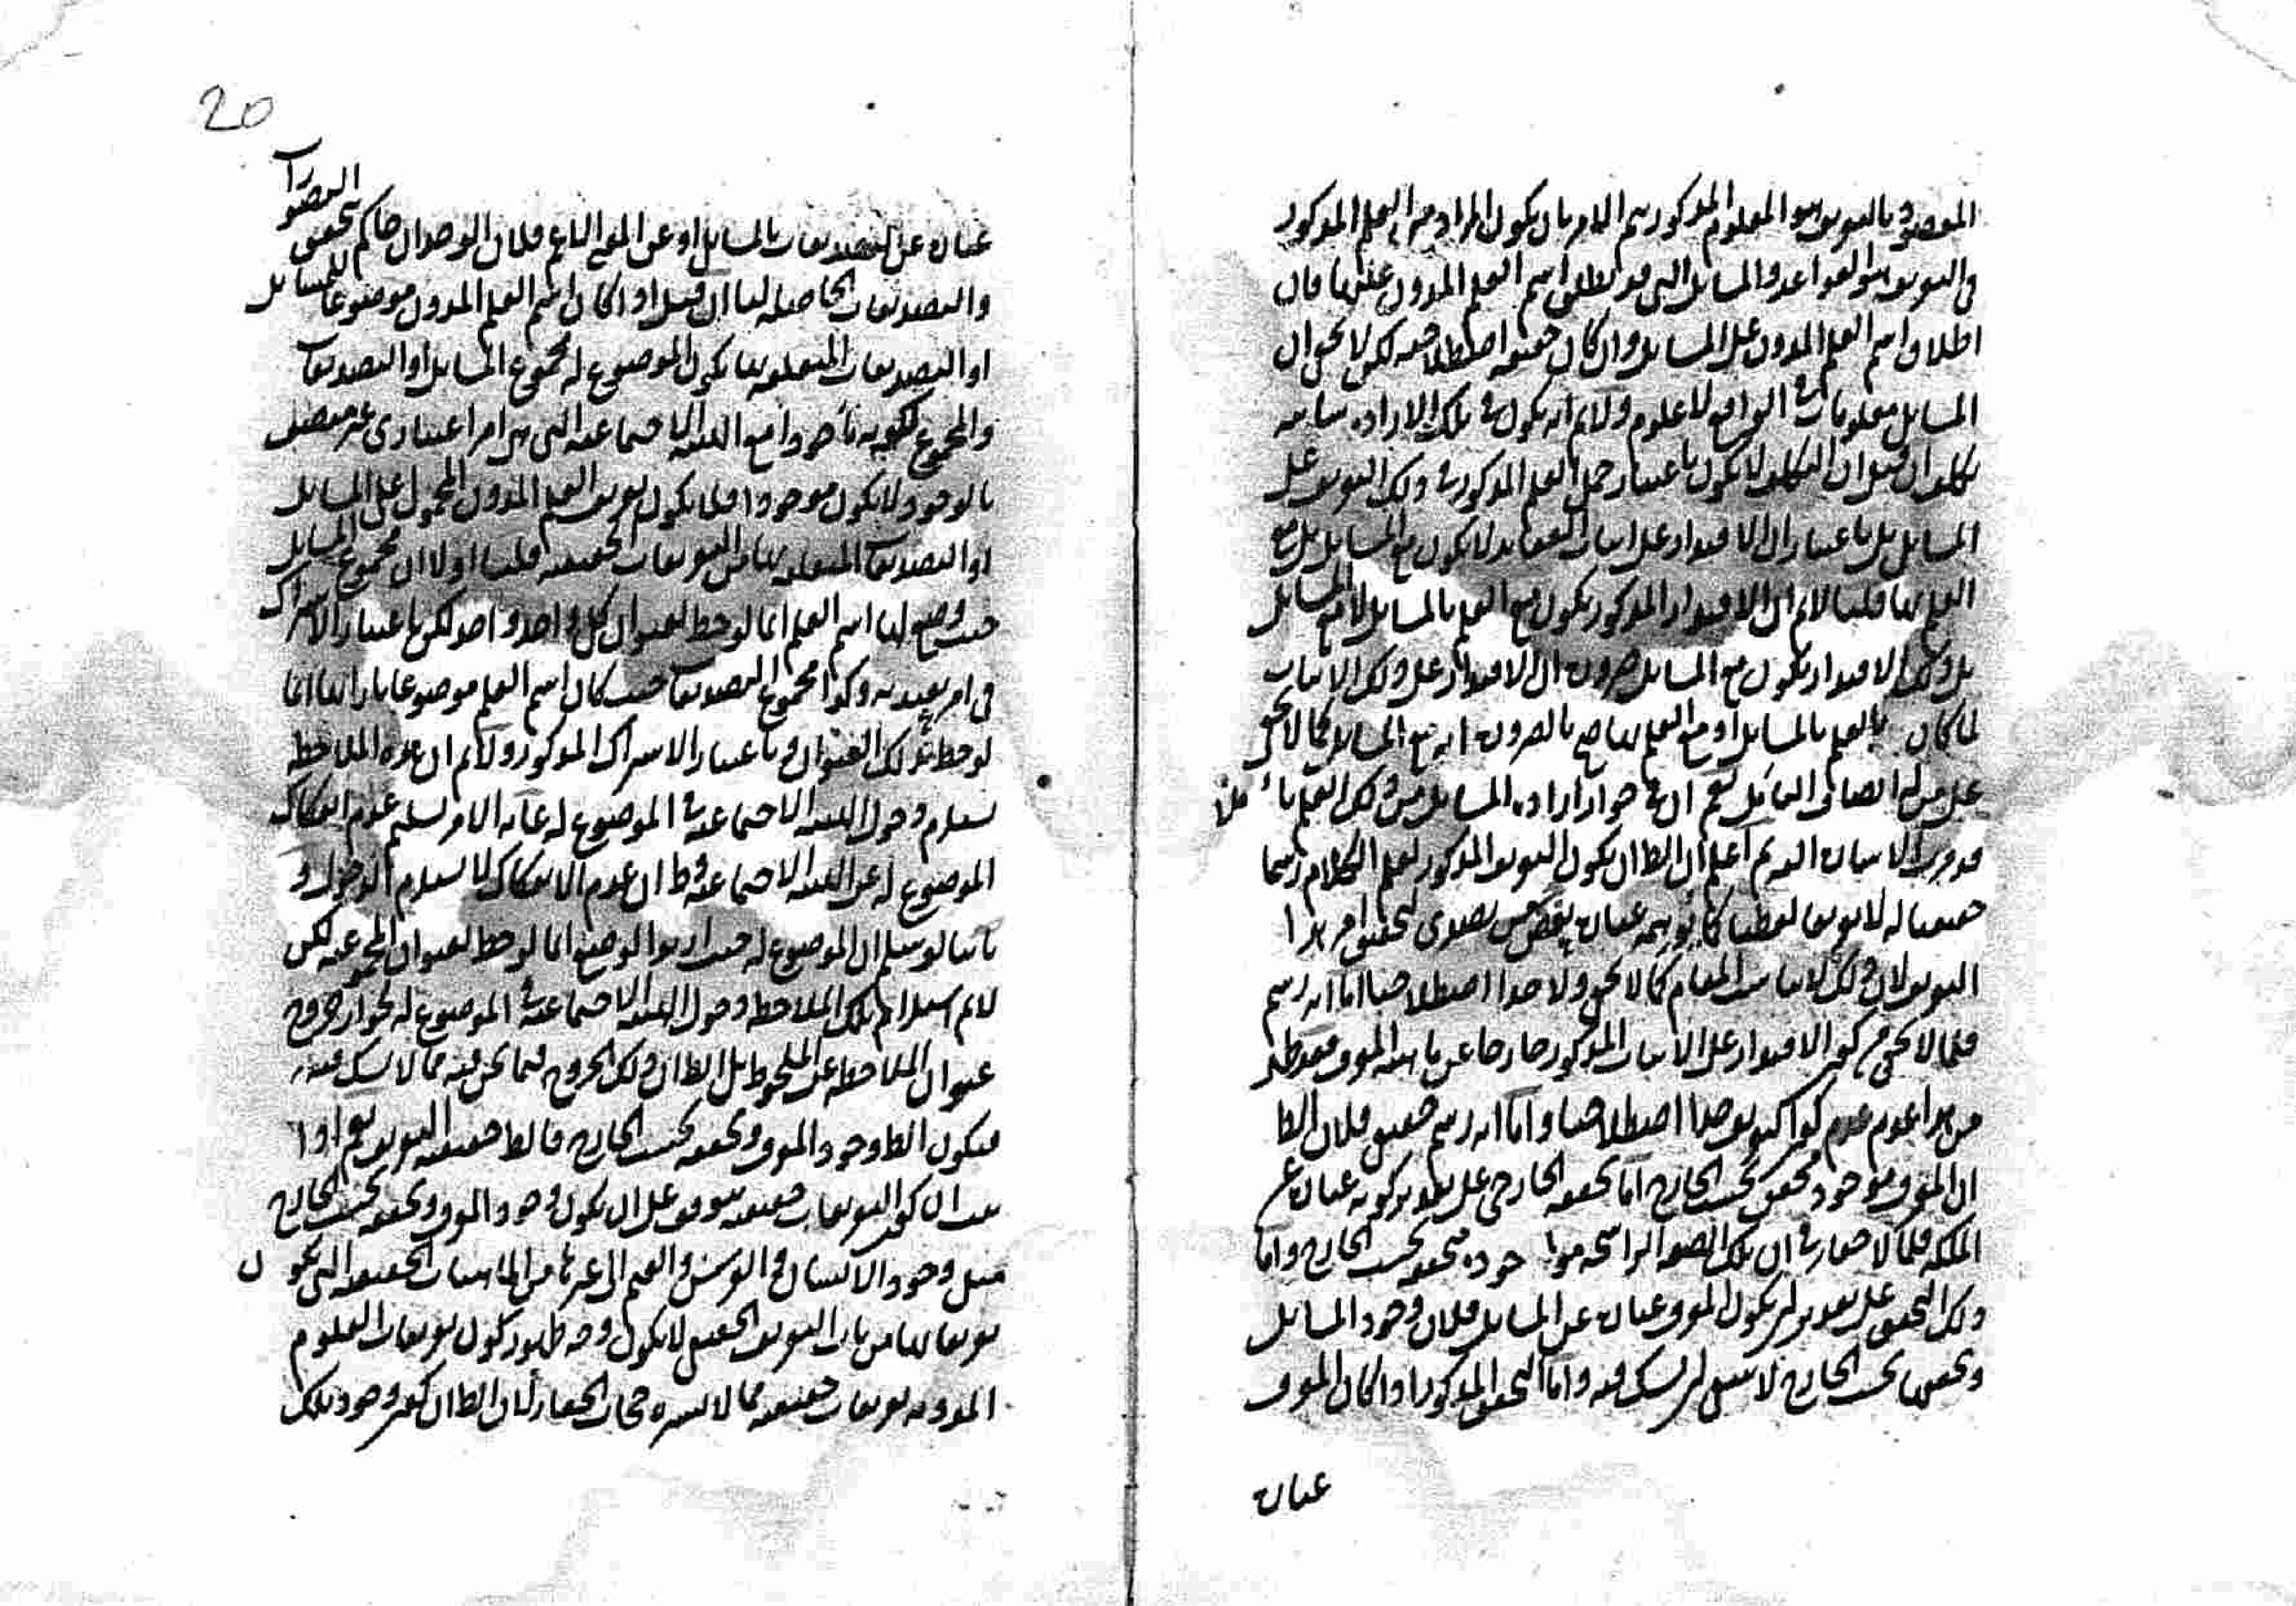 المقصود بالتعريف هو المعلوم المذكور ثم الامر بان يكون المراد من العلم المذكور
في التعريف هو القواعد والمسائل التي قد يطلق اسم العلم المدون عليها فان
اطلاق اسم العلم المدون على المسائل وان كان حقيقة اصطلاحية لكن لا يخفى ان
المسائل معلومات في الواقع لا علوم ولا نم انه يكون في تلك الارادة شائبة
تكلف ان قيل ان التكلف لا يكون باعتبار حمل العلم المذكور في ذلك التعريف على
المسائل بل باعتبار ان الاقتدار على اثبات العقايد لا يكون مع المسائل بل مع
العلم بها قلنا لا نم ان الاقتدار المذكور يكون مع العلم بالمسائل لا مع المسائل
بل ذلك الاقتدار يكون مع المسائل ضرورة ان الاقتدار على ذلك الاثبات
لما كان بالعلم بالمسائل او مع العلم بها صح بالضرورة انه مع المسائل كما لا يخفى
على من له انصاف القائل نعم ان في جواز ارادة المسائل من ذلك العلم
اعلم ان الظ ان يكون التعريف المذكور لعلم الكلام رسما
حقيقيا له لا تعريفا لفظيا كما توهمه عبارة بعض من تصدى لتحقيق امر هذا
التعريف لان ذلك لا يناسب المقام كما لا يخفى ولا حدا اصطلاحيا اما انه رسم
فلما لا يخفى من كون الاقتدار على الاثبات المذكور خارجا عن ماهية المعرف فقد ظهر
من هذا عدم كون التعريف حدا اصطلاحيا واما انه رسم حقيقي فلان الظ
ان المعرف موجود محقق بحسب الخارج اما تحققه الخارجي على تقدير كونه عبارة عن
الملكة فلما لا خفاء في ان تلك الصفة الراسخة موجودة متحققة بحسب الخارج واما
ذلك التحقق على تقدير ان يكون المعرف عبارة عن المسائل فلان وجود المسائل
وتحققها بحسب الخارج لا ينبغي ان يشك فيه واما التحقق المذكور اذا كان المعرف
عبارة
20
عبارة عن التصديقات بالمسائل او عن المعنى الاعم فلان الوجدان حاكم بتحقق التصورات
والتصديقات الحاصلة لنا ان قيل اذا كان اسم العلم المدون موضوعا للمسائل
او التصديقات المتعلقة بها يكون الموضوع له مجموع المسائل او التصديقات
والمجموع لكونه مأخوذا مع الهيئة الاجتماعية التي هي امر اعتباري غير متصف
بالوجود ولا يكون موجودا فلا يكون تعريف العلم المدون المحمول على المسائل
او التصديقات المتعلقة بها من التعريفات الحقيقية قلنا اولا ان مجموع المسائل
حيث وضع لها اسم العلم انما لوحظ بعنوان كل واحد واحد لكن باعتبار الاشتراك
في امر يعتد به وكذا مجموع التصديقات حيث كان اسم العلم موضوعا بازائها انما
لوحظ بذلك العنوان وباعتبار الاشتراك المذكور ولا نم ان هذه الملاحظة
تستلزم دخول الهيئة الاجتماعية في الموضوع له غاية الامر تسليم عدم انفكاك
الموضوع له عن الهيئة الاجتماعية وظ ان عدم الانفكاك لا يستلزم الدخول و
ثانيا لو سلم ان الموضوع له حيث اريد الوضع انما لوحظ بعنوان المجموعية لكن
لا نم استلزام تلك الملاحظة دخول الهيئة الاجتماعية في الموضوع له لجواز خروج
عنوان الملاحظة عن الملحوظ بل الظ ان ذلك الخروج فيما نحن فيه مما لا يشك فيه
فيكون الظ وجود المعرف وتحققه بحسب الخارج فالظ حقيقية التعريف نعم اذا
ثبت ان كون التعريفات حقيقية موقوف على ان يكون وجود المعرف وتحققه بحسب الخارج
مثل وجود الانسان والفرس والغنم الى غيرها من الماهيات الحقيقية التي يكون
تعريفاتها من باب التعريف الحقيقي لا يكون وجه ظهور كون تعريفات العلوم
المدونة تعريفات حقيقية مما لا يستره حجاب الخفاء لان الظ ان كون وجود تلك